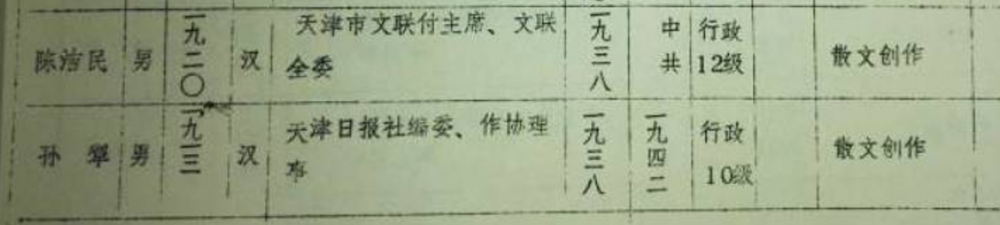 陈洁民 男 一九二〇 汉 天津市文联付主席、文联全委 一九三八 中共 行政12级 散文创作
孙犁 男 一九一三 汉 天津日报社编委、作协理事 一九三八 一九四二 行政10级 散文创作